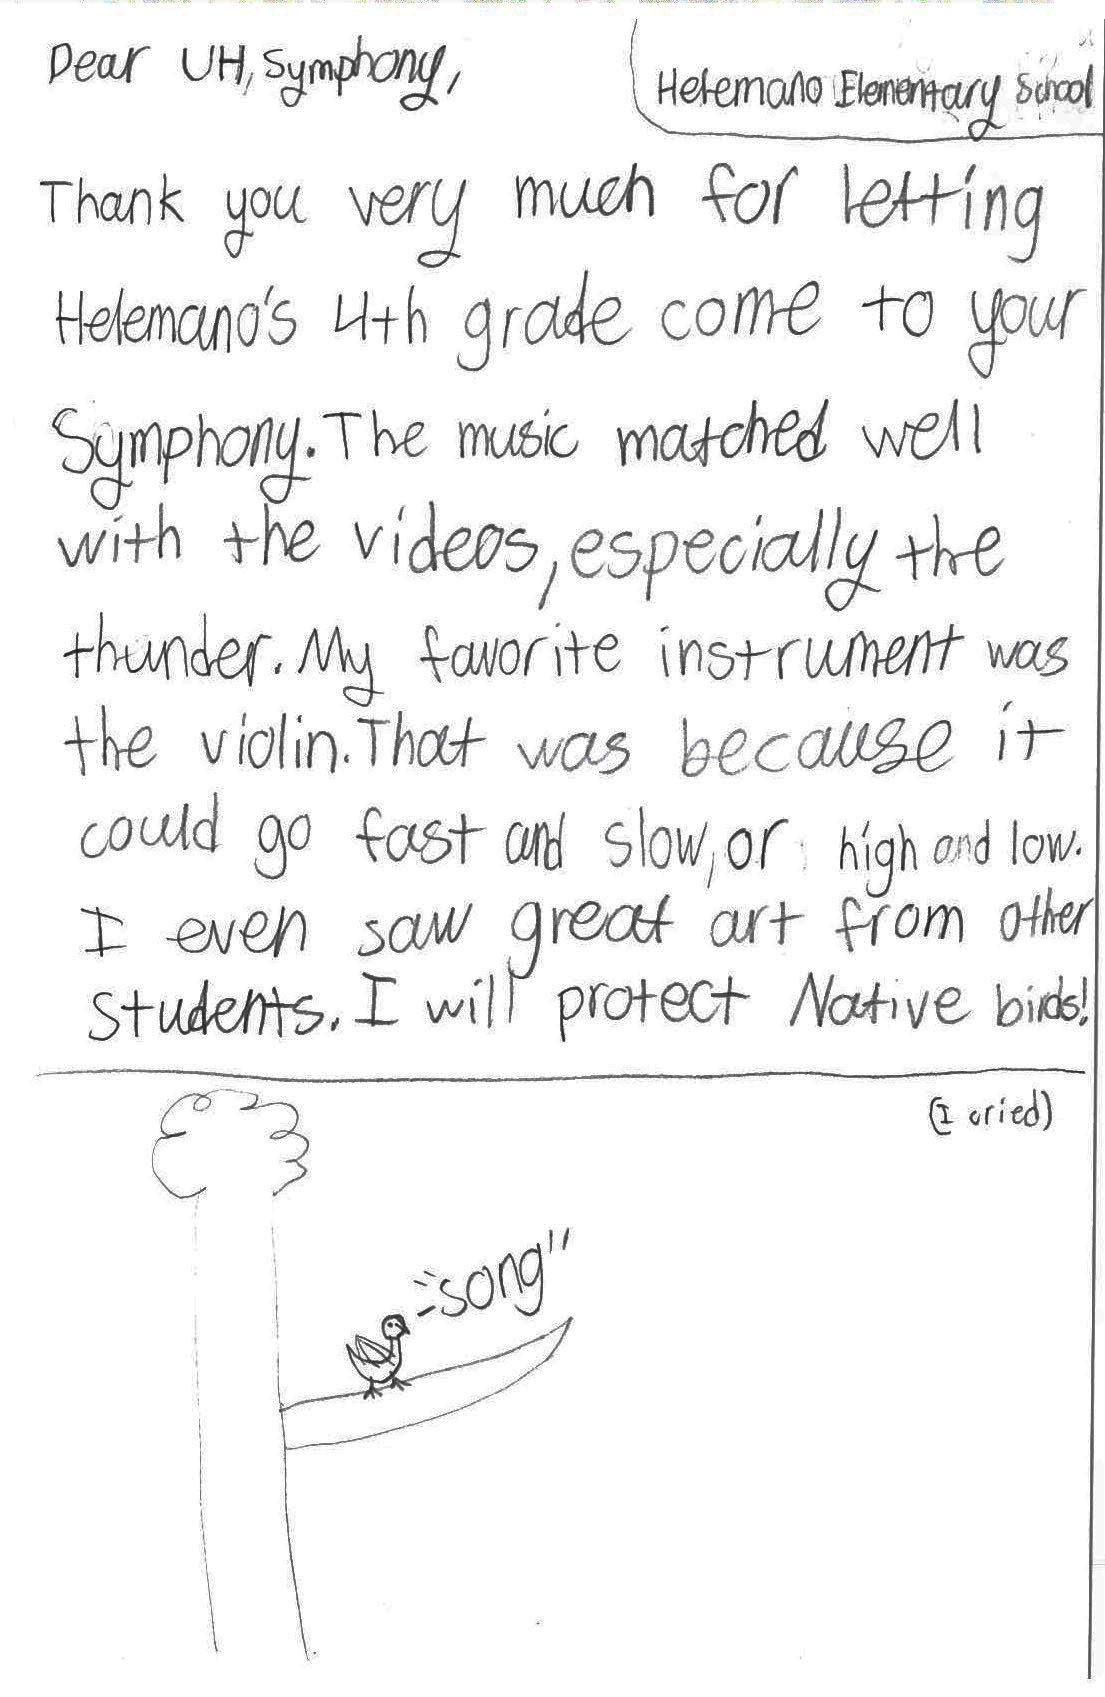 Dear UH, Symphony,
Helemano Elementary School
Thank you very much for letting
Helemano's 4th grade come to your
Symphony. The music matched well
with the videos, especially the
thunder. My favorite instrument was
the violin. That was because it
could go fast and slow, or high and low.
I even saw great art from other
students. I will protect Native birds!
(I cried)
"song"